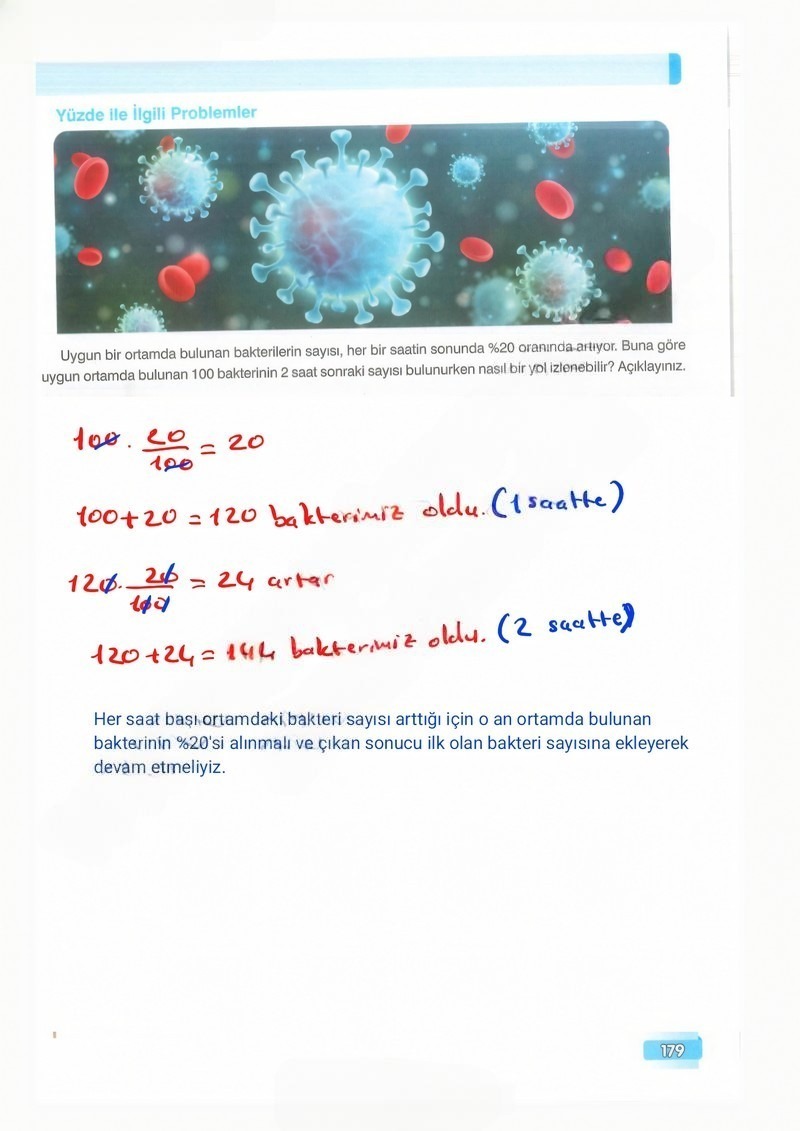 Yüzde ile İlgili Problemler
Uygun bir ortamda bulunan bakterilerin sayısı, her bir saatin sonunda %20 oranında artıyor. Buna göre
uygun ortamda bulunan 100 bakterinin 2 saat sonraki sayısı bulunurken nasıl bir yol izlenebilir? Açıklayınız.
100 . 20/100 = 20
100+20 = 120 bakterimiz oldu. (1 saatte)
120. 20/100 = 24 artar
120+24 = 144 bakterimiz oldu. (2 saatte)
Her saat başı ortamdaki bakteri sayısı arttığı için o an ortamda bulunan
bakterinin %20'si alınmalı ve çıkan sonucu ilk olan bakteri sayısına ekleyerek
devam etmeliyiz.
179